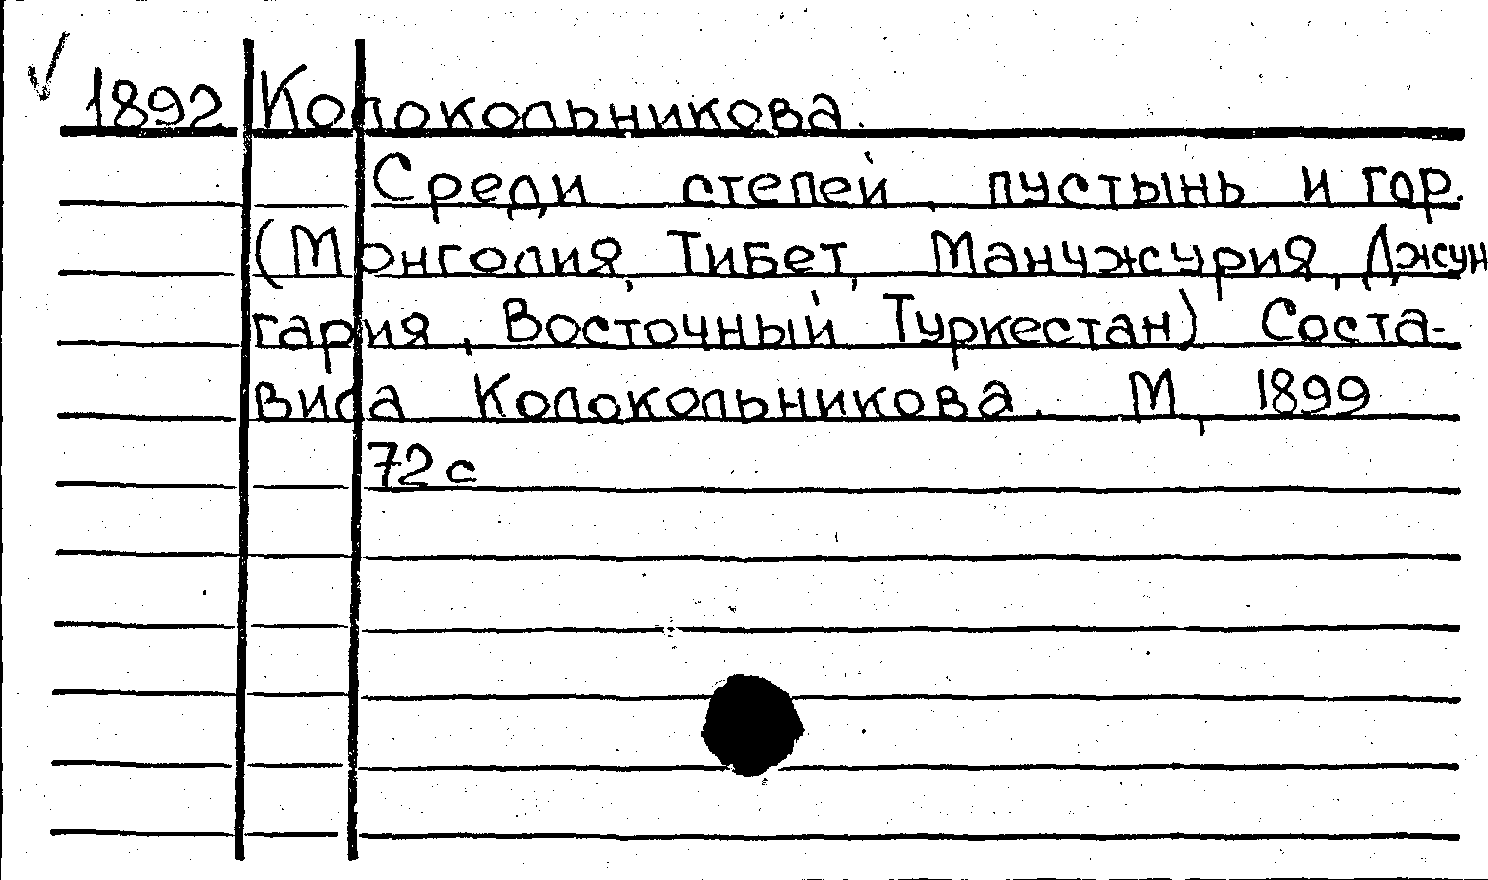 1892 Колокольникова.
Среди степей, пустынь и гор.
(Монголия, Тибет, Манчжурия, Джун
гария, Восточный Туркестан) Соста-
вила Колокольникова. М, 1899
72 с